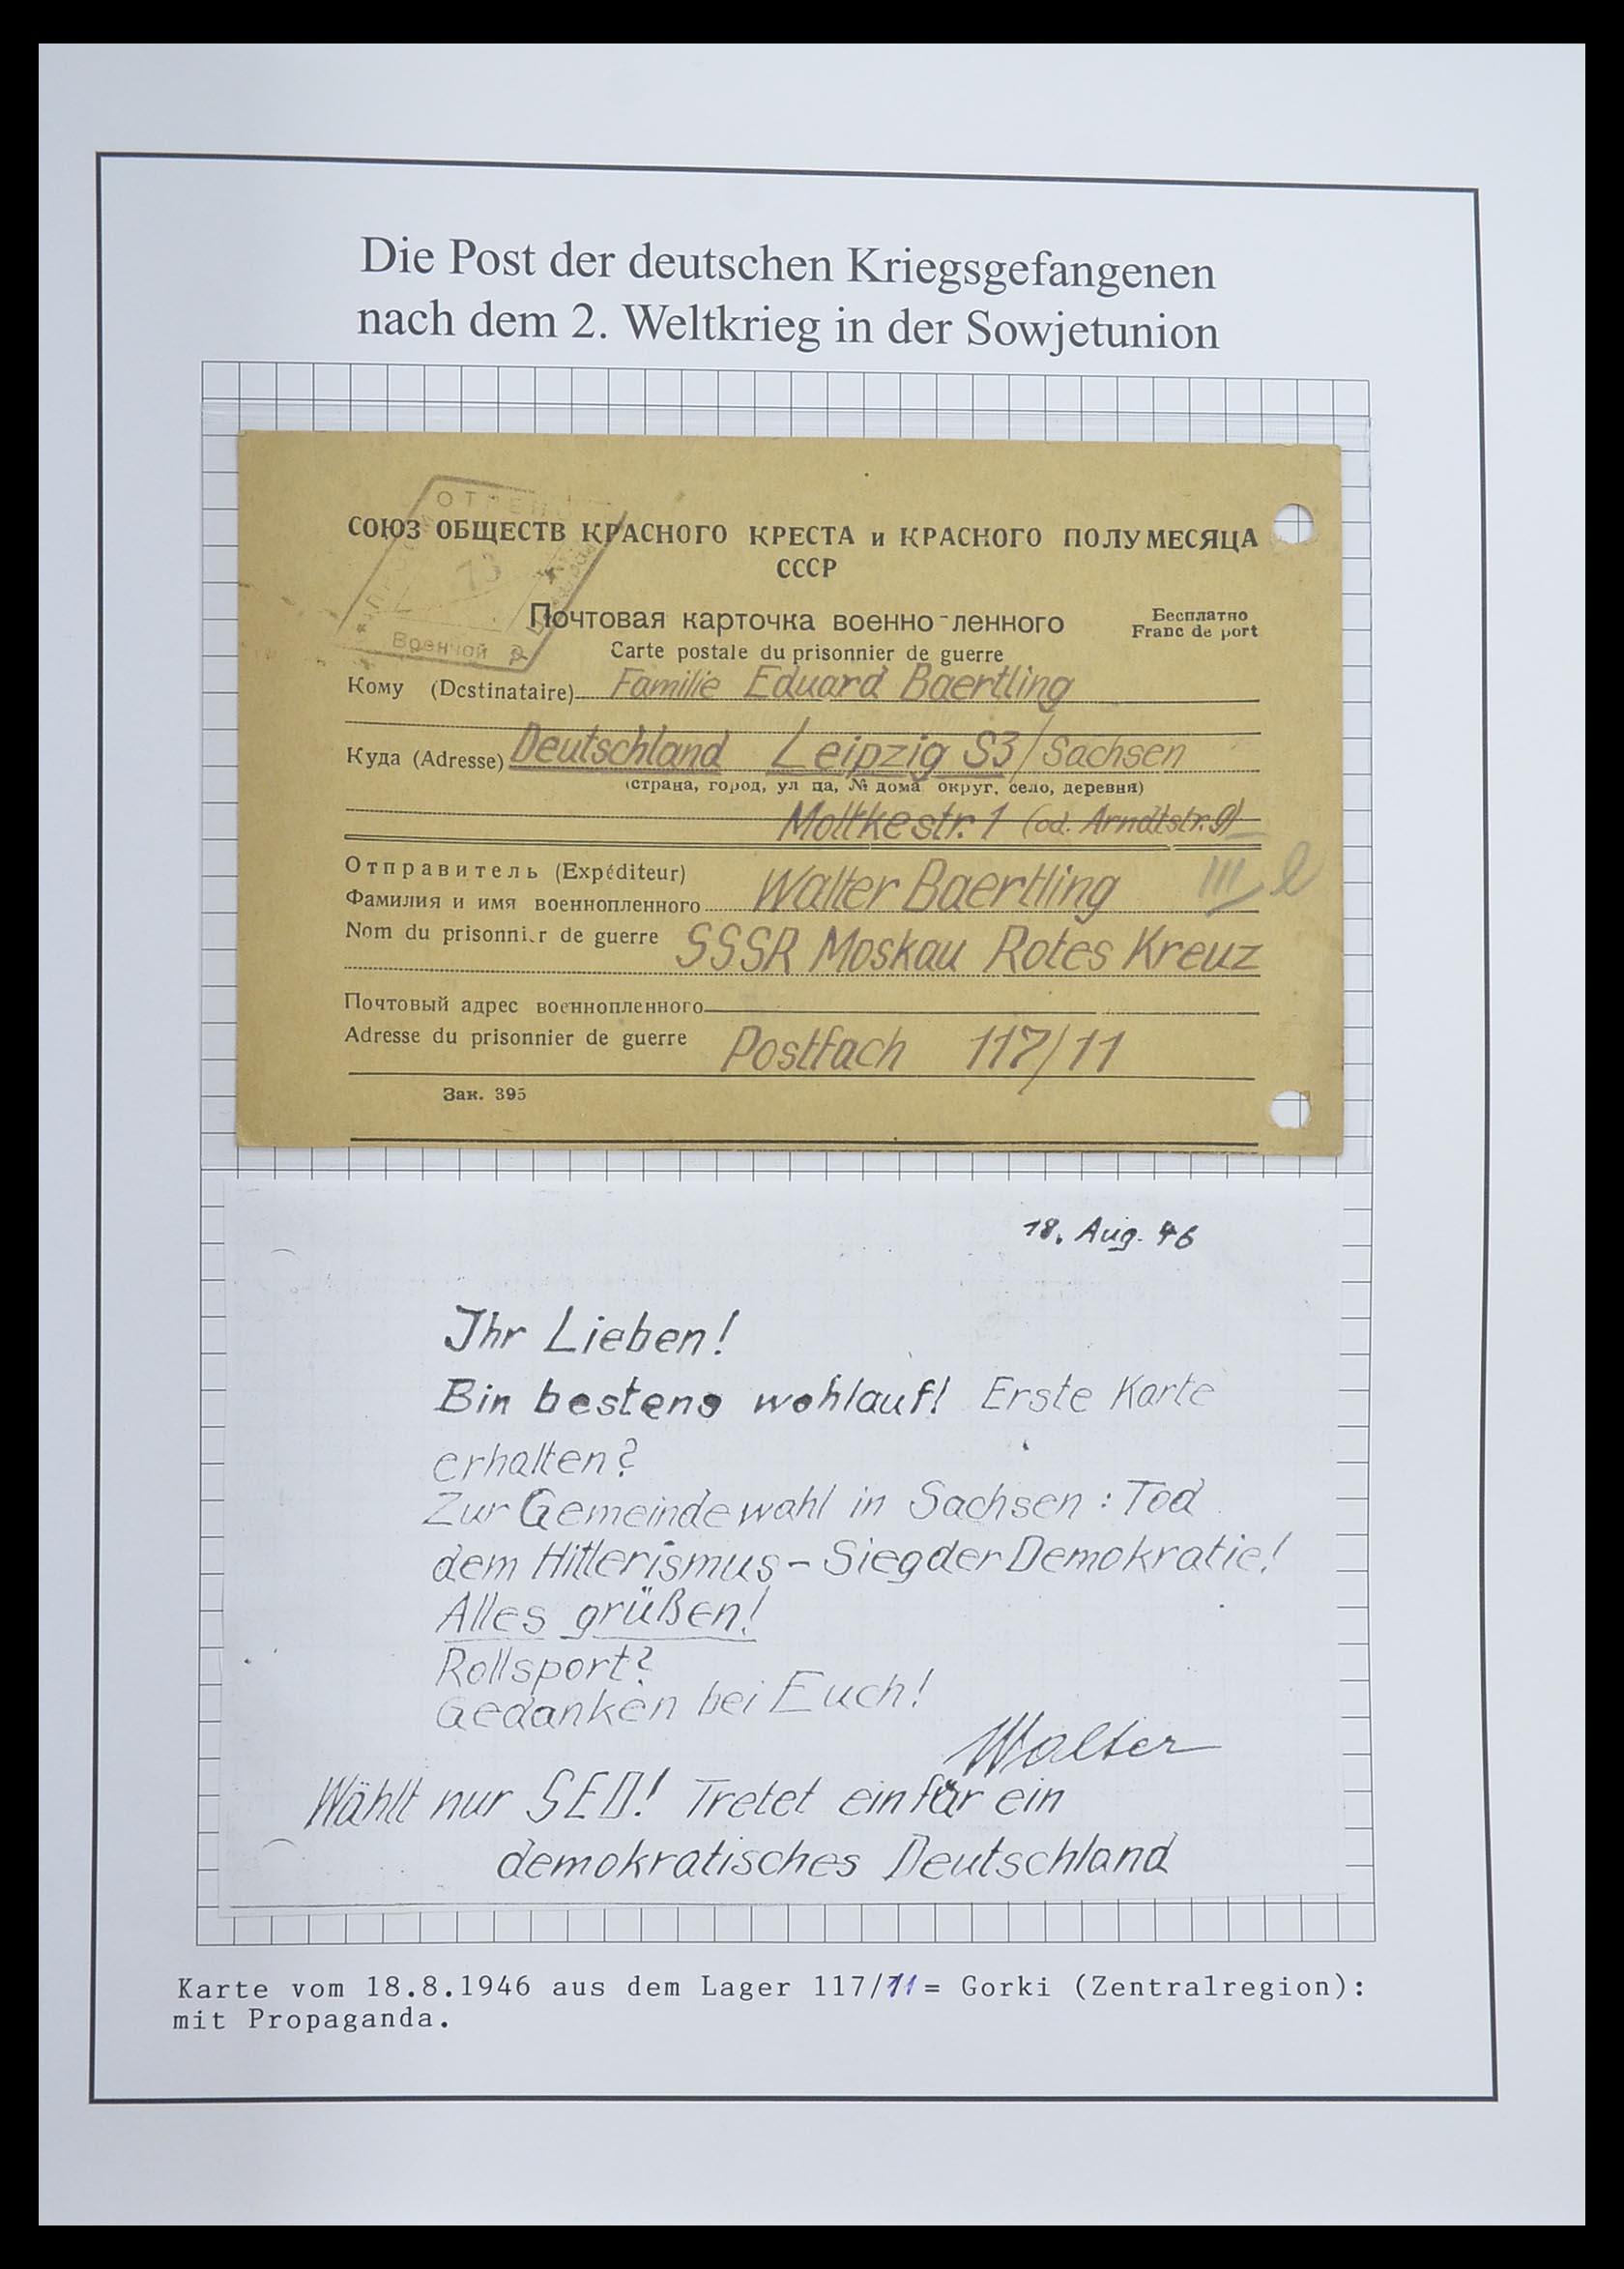 Die Post der deutschen Kriegsgefangenen
nach dem 2. Weltkrieg in der Sowjetunion
СОЮЗ ОБЩЕСТВ КРАСНОГО КРЕСТА и КРАСНОГО ПОЛУМЕСЯЦА
СССР
Почтовая карточка военно-ленного
Бесплатно
Franc de port
Carte postale du prisonnier de guerre
Кому (Destinataire) Familie Eduard Baertling
Куда (Adresse) Deutschland Leipzig S3/Sachsen
(страна, город, ул ца, № дома округ, село, деревня)
Moltkestr. 1 (od. Arndtstr. 9)
Отправитель (Expéditeur)
Фамилия и имя военнопленного Walter Baertling III
Nom du prisonnier de guerre SSSR Moskau Rotes Kreuz
Почтовый адрес военнопленного
Adresse du prisonnier de guerre Postfach 117/11
Зак. 395
18. Aug. 46
Ihr Lieben!
Bin bestens wohlauf! Erste Karte
erhalten?
Zur Gemeindewahl in Sachsen: Tod
dem Hitlerismus – Sieg der Demokratie!
Alles grüßen!
Rollsport?
Gedanken bei Euch!
Walter
Wählt nur SED! Tretet ein für ein
demokratisches Deutschland
Karte vom 18.8.1946 aus dem Lager 117/11= Gorki (Zentralregion):
mit Propaganda.